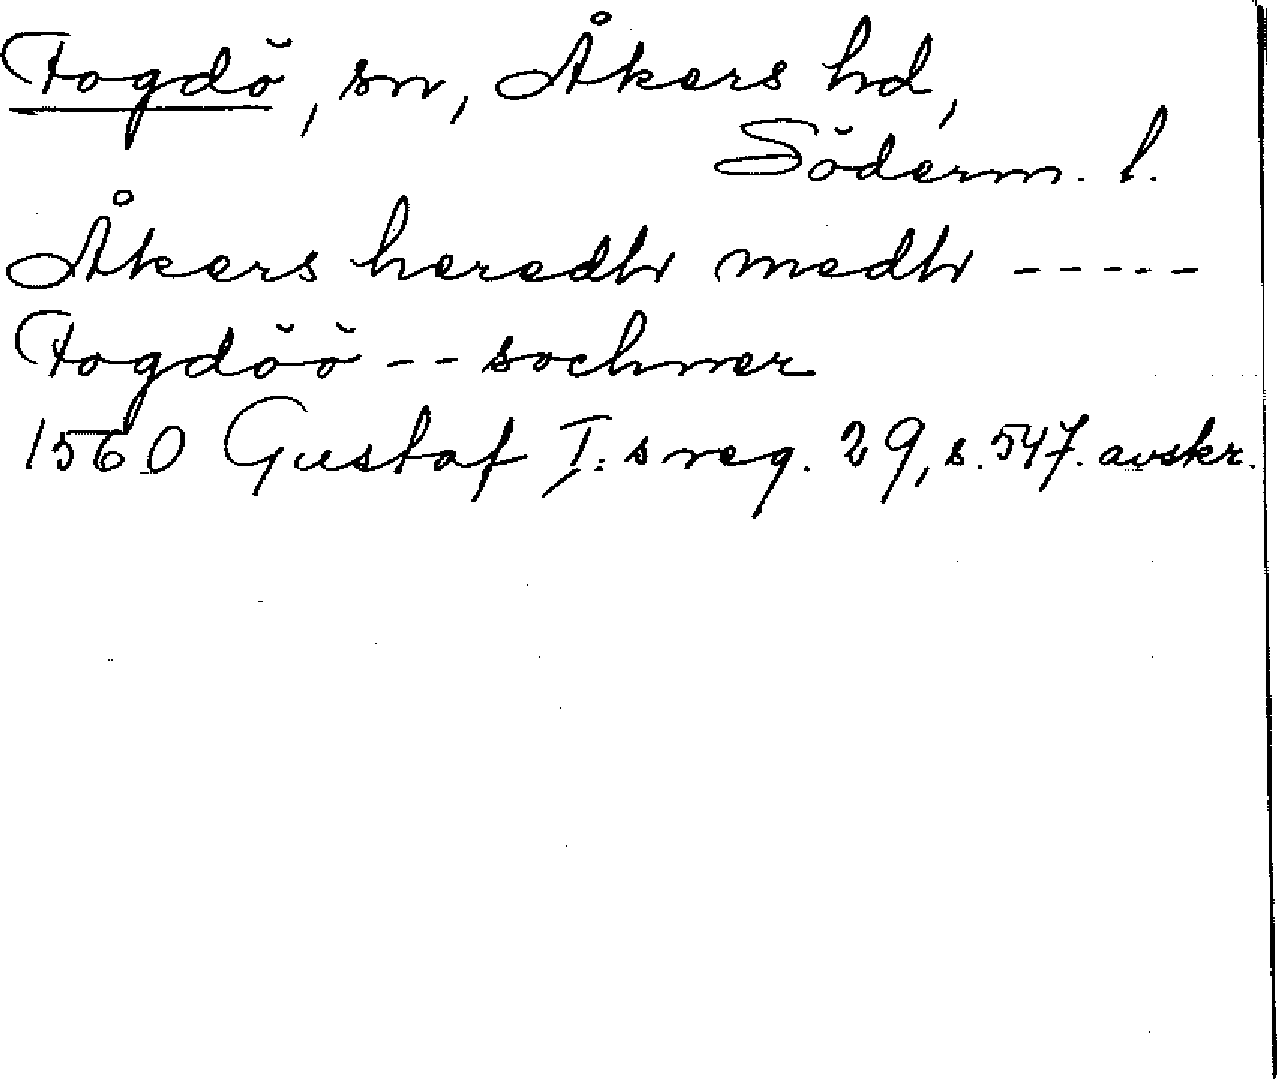 Fogdö, sn, Åkers hd,
Söderm. l.
Åkers heredh medh -----
Fogdöö -- sochner
1560 Gustaf I:s reg. 29, s. 547. avskr.